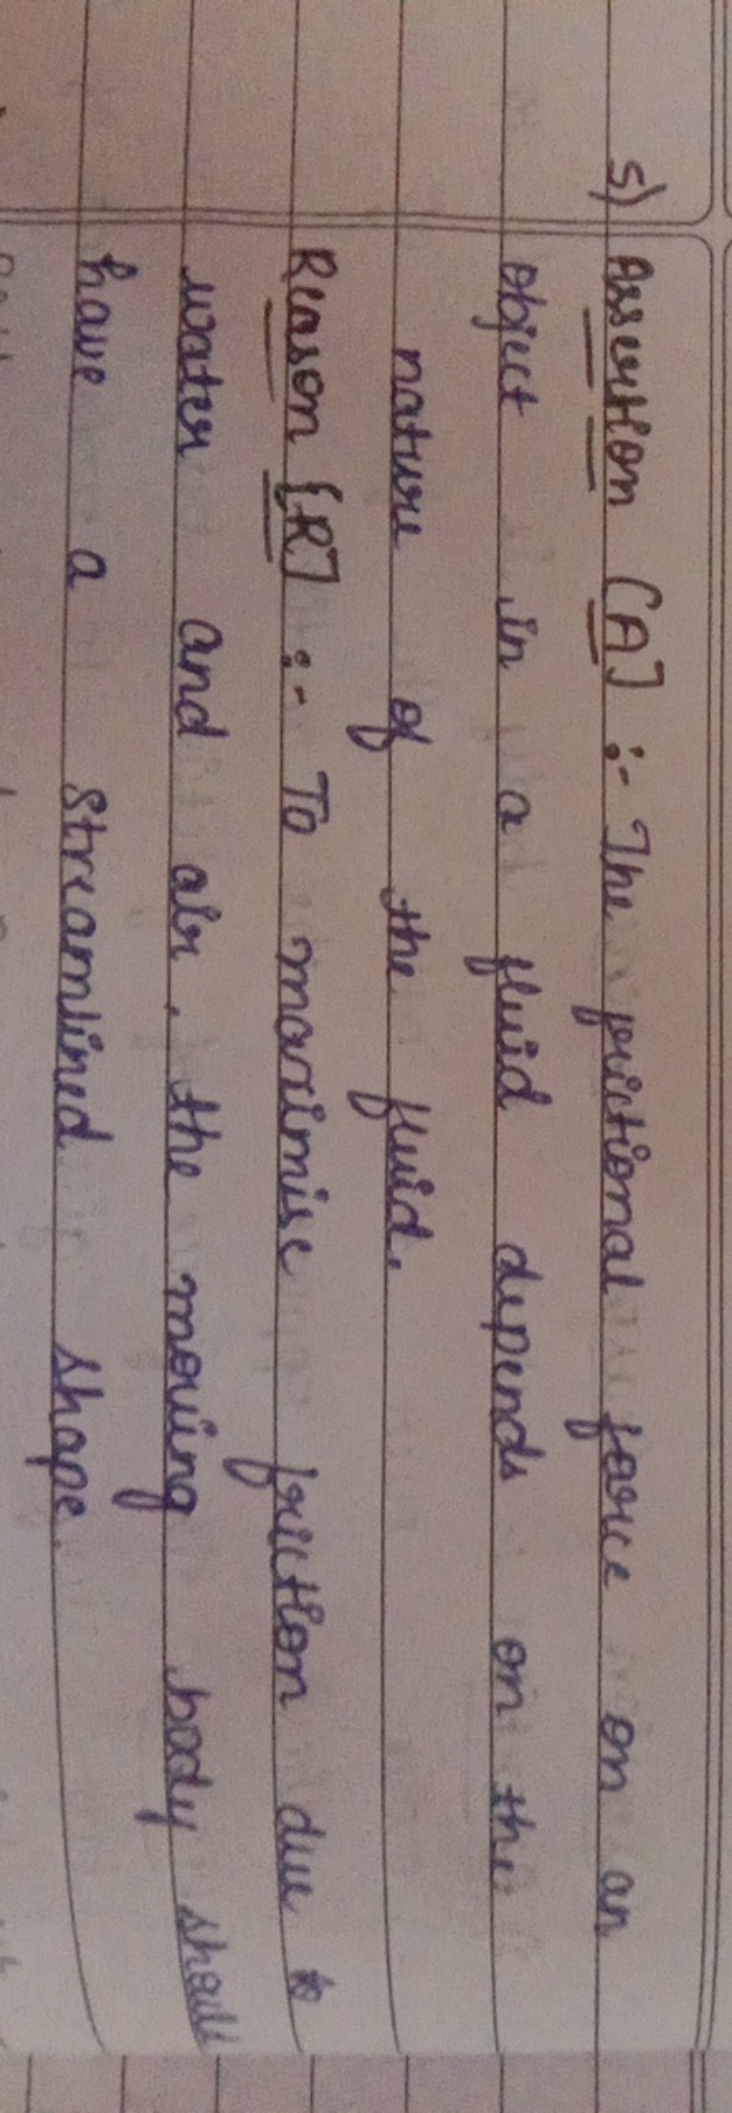 5) Assertion [A] :- The frictional force on an
object in a fluid depends on the
nature of the fluid.
Reason [R] :- To maximise friction due to
water and air, the moving body should
have a streamlined shape.